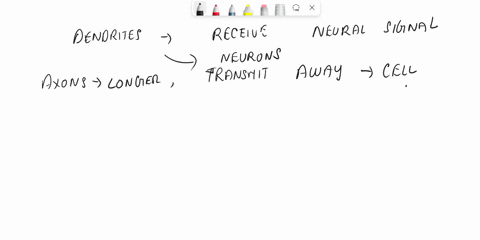 DENDRITES → RECEIVE NEURAL SIGNAL
→ NEURONS
AXONS → LONGER, TRANSMIT AWAY → CELL